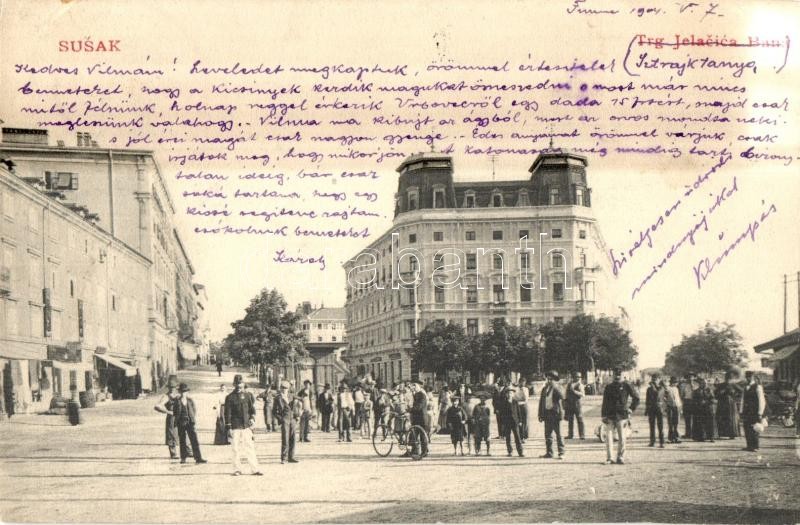 Fiume 1904. V. 7.
SUŠAK
Trg Jelačića Bana
(Sztrajk Tanya)
Kedves Vilmám! Leveledet megkaptuk, örömmel értesültek
benneteket, hogy a Kicsinyek kezdik magukat most már nincs
mitől félnünk, holnap reggel érkezik Vrbovecről egy dada 15 frtért, majd csak
meglesünk valahogy. Vilma ma kibujt az ágyból, mert az orvos mondta neki
s jól érzi magát csak nagyon gyenge. Édes anyánkat örömmel várjuk, csak
írjátok meg, hogy mikor jön, a katonaság még mindig tart
talan ideig, bár csak
soká tartana, hogy egy
kissé segitene rajtam
csókolnak benneteket
Karol
Szivélyesen üdvözöl
mindnyájukat
abanth